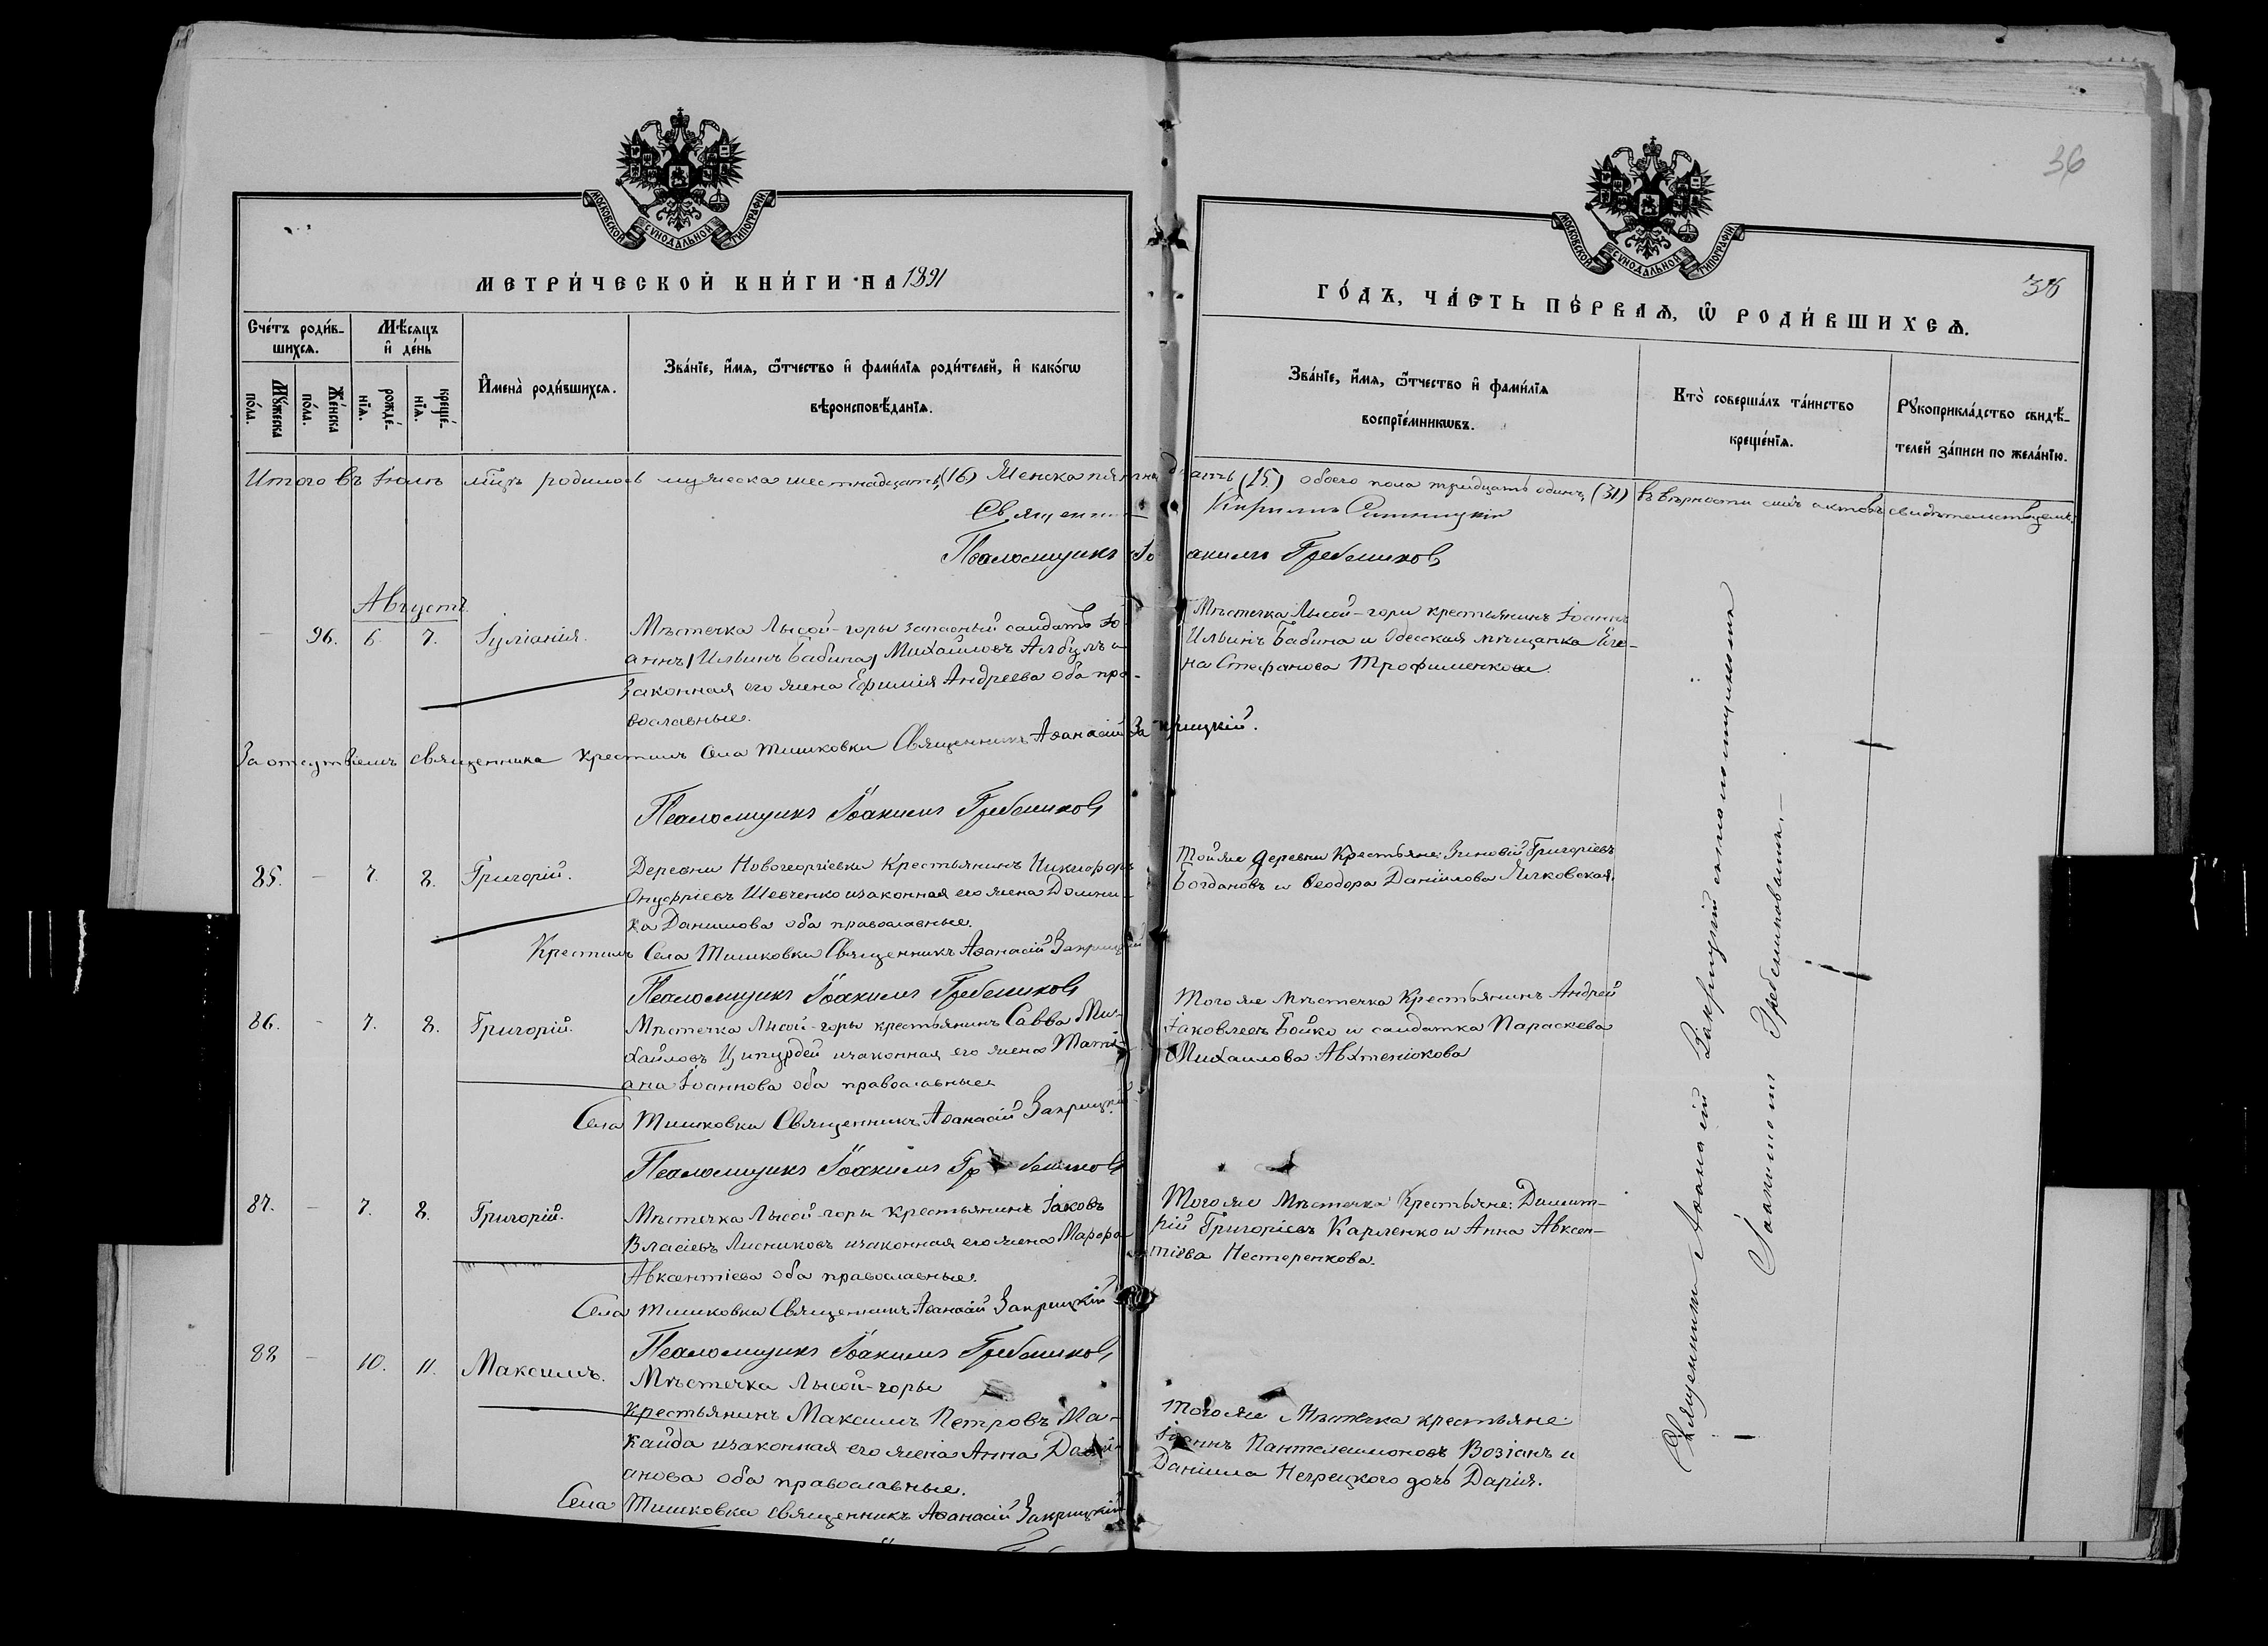 36
МОСКОВСКОЙ СѴНОДАЛЬНОЙ ТИПОГРАФІИ.
МОСКОВСКОЙ СѴНОДАЛЬНОЙ ТИПОГРАФІИ.
МЕТРИ́ЧЕСКОЙ КНИ́ГИ НА 1891
ГО́ДЪ, ЧА́СТЬ ПЕ́РВАѦ, Ѿ РОДИ́ВШИХСѦ.
Сче́тъ роди́в-
шихся.
Мѣ́сяцъ
и҆ де́нь
Мꙋ́жеска
по́ла.
Же́нска
по́ла.
рожде́-
нїя.
креще́-
нїя.
И҆мена̀ роди́вшихся.
Зва́нїе, и҆́мя, ѻ҆́тчество и҆ фами́лїя роди́телей, и҆ како́гѡ
вѣроисповѣ́данїя.
Зва́нїе, и҆́мя, ѻ҆́тчество и҆ фами́лїя
воспрїе́мникѡвъ.
Кто̀ соверша́лъ та́инство
креще́нїя.
Рꙋкоприкла́дство свидѣ́-
телей за́писи по жела́нїю.
Итого въ Іюлѣ мцѣ родилось мужеска шестнадцать (16) Женска пятнадцать (15) обоего пола тридцать одинъ (31) въ вѣрности сихъ актовъ свидѣтельствуемъ:
Священникъ Кириллъ
Псаломщикъ Іоакимъ Гребениковъ
Августъ
– 96. 6. 7. Іуліанія.
Мѣстечка Лысой-горы запасный солдатъ Іо-
аннъ /Ильинъ Бабина/ Михайловъ Албулъ и
законная его жена Ефимія Андреева оба пра-
вославные.
Мѣстечка Лысой-горы крестьянинъ Іоаннъ
Ильинъ Бабина и Одесская мѣщанка Еле-
на Стефанова Трофименкова.
За отсутвіемъ священника крестилъ Села Тишковки Священникъ Аѳанасій Закрицкій.
Псаломщикъ Іоакимъ Гребениковъ
85. – 7. 8. Григорій.
Деревни Новогеоргіевки Крестьянинъ Никифоръ
Онуфріевъ Шевченко и законная его жена Домни-
ка Данилова оба православные.
Той же деревни Крестьяне: Зиновій Григоріевъ
Богдановъ и Ѳеодора Даніилова Ячковская.
Крестилъ Села Тишковки Священникъ Аѳанасій Закрицкій
Псаломщикъ Іоакимъ Гребениковъ
86. – 7. 8. Григорій.
Мѣстечка Лысой-горы крестьянинъ Савва Ми-
хайловъ Ципурдей и законная его жена Тати-
ана Іоаннова оба православные
Того же мѣстечка Крестьянинъ Андрей
Іаковлевъ Бойко и солдатка Параскева
Михаилова Автеніюкова
Села Тишковки Священникъ Аѳанасій Закрицкій
Псаломщикъ Іоакимъ Гребениковъ
87. – 7. 8. Григорій.
Мѣстечка Лысой-горы Крестьянинъ Іаковъ
Власіевъ Лисниковъ и законная его жена Марѳа
Авксентіева оба православные.
Того же Мѣстечка Крестьяне: Димит-
рій Григоріевъ Карленко и Анна Авксен-
тіева Нестеренкова.
Села Тишковки Священникъ Аѳанасій Закрицкій
Псаломщикъ Іоакимъ Гребениковъ
88 – 10. 11. Максимъ.
Мѣстечка Лысой-горы
крестьянинъ Максимъ Петровъ Ма-
кайда и законная его жена Анна Дамі-
анова оба православные.
Того же Мѣстечка крестьяне:
Іоаннъ Пантелеимоновъ Возіанъ и
Даніила Негрецкого дочь Дарія.
Села Тишковки священникъ Аѳанасій Закрицкій
Священникъ Аѳанасій Закрицкій
Іоакимъ Гребениковъ